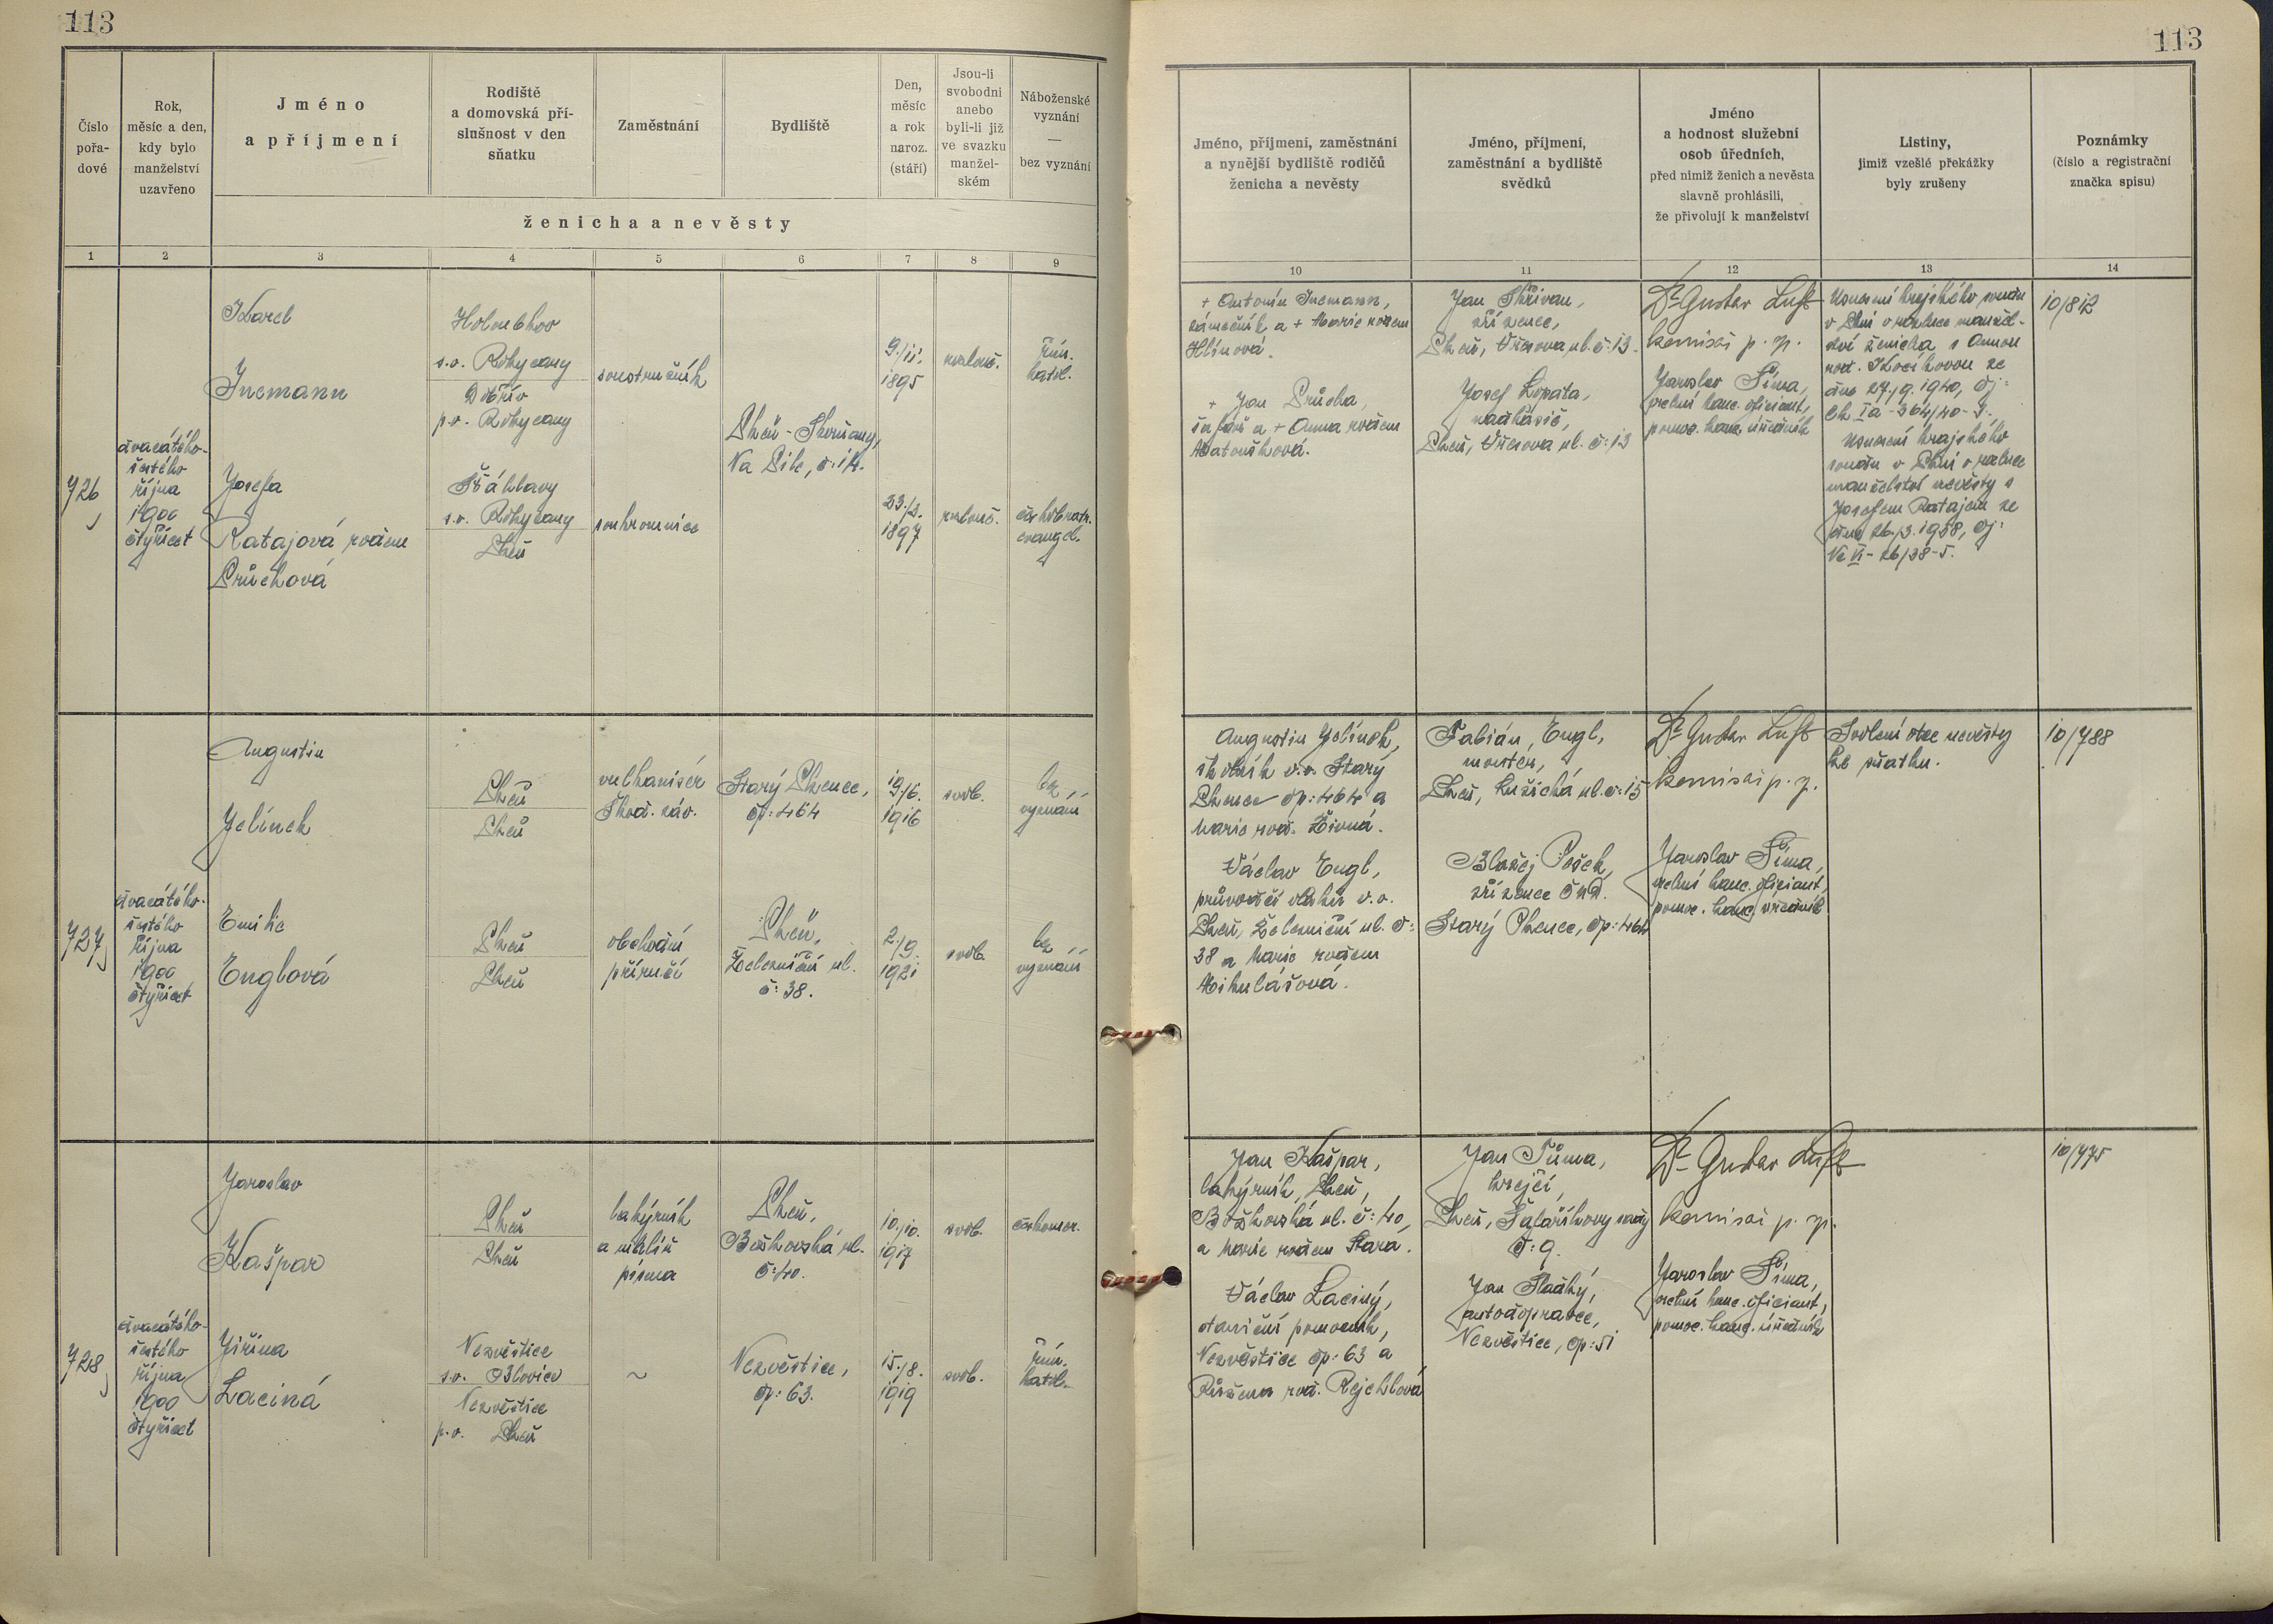 113
113
Číslo
pořa-
dové
Rok,
měsíc a den,
kdy bylo
manželství
uzavřeno
Jméno
a příjmení
Rodiště
a domovská pří-
slušnost v den
sňatku
Zaměstnání
Bydliště
Den,
měsíc
a rok
naroz.
(stáří)
Jsou-li
svobodni
anebo
byli-li již
ve svazku
manžel-
ském
Náboženské
vyznání
—
bez vyznání
ženicha a nevěsty
Jméno, příjmení, zaměstnání
a nynější bydliště rodičů
ženicha a nevěsty
Jméno, příjmení,
zaměstnání a bydliště
svědků
Jméno
a hodnost služební
osob úředních,
před nimiž ženich a nevěsta
slavně prohlásili,
že přivolují k manželství
Listiny,
jimiž vzešlé překážky
byly zrušeny
Poznámky
(číslo a registrační
značka spisu)
1 2 3 4 5 6 7 8 9
10 11 12 13 14
726
dvacátého-
šestého
října
1900
čtyřicet
Karel
Incmann
Josefa
Ratajová rodem
Průchová
Holoubkov
s.o. Rokycany
Dobřív
p.o. Rokycany
Šťáhlavy
s.o. Rokycany
Plzeň
soustružník
soukromnice
Plzeň-Skvrňany,
Na Pile, č: 14.
9./11.
1895
23./2.
1897
rozlouč.
rozlouč.
řím.
katol.
českobratr.
evangel.
+ Antonín Incmann,
zámečník a + Marie rodem
Hlínová.
+ Jan Průcha,
šafář a + Anna rodem
Matoušková.
Jan Skřivan,
zřízenec,
Plzeň, Všerova ul. č: 13.
Josef Lopata,
nadhasič,
Plzeň, Všerova ul. č: 13
Dr Gustav Luft
komisař p. s.
Jaroslav Šíma,
vrchní kanc. oficiant,
pomoc. kanc. úředník
Usnesení krajského soudu
v Plzni o rozluce manžel-
ství ženicha s Annou
roz. Kočíkovou ze
dne 27./9. 1940, čj:
Ck Ia-364/40-3.
Usnesení krajského
soudu v Plzni o rozluce
manželství nevěsty s
Josefem Ratajem ze
dne 26./3. 1938, čj:
Nc VI-26/38-5.
10/812
727
dvacátého-
šestého
října
1900
čtyřicet
Augustin
Jelínek
Emilie
Englová
Plzeň
Plzeň
Plzeň
Plzeň
vulkanisér
Škod. záv.
obchodní
příručí
Starý Plzenec,
čp: 464
Plzeň,
Železniční ul.
č: 38.
19./6.
1916
2./9.
1921
svob.
svob.
bez
vyznání
bez
vyznání
Augustin Jelínek,
školník v.v. Starý
Plzenec čp: 464 a
Marie roz. Živná.
Václav Engl,
průvodčí vlaků v.v.
Plzeň, Železniční ul. č:
38 a Marie rodem
Mikulášová.
Fabián, Engl,
montér,
Plzeň, Lužická ul. č: 15
Blažej Pošek,
zřízenec ČSD.
Starý Plzenec, čp: 464
Dr Gustav Luft
komisař p. s.
Jaroslav Šíma,
vrchní kanc. oficiant,
pomoc. kanc. úředník
Svolení otce nevěsty
ke sňatku.
10/788
728
dvacátého-
šestého
října
1900
čtyřicet
Jaroslav
Kašpar
Jiřina
Laciná
Plzeň
Plzeň
Nezvěstice
s.o. Blovice
Nezvěstice
p.o. Plzeň
lakýrník
a malíř
písma
~
Plzeň,
Božkovská ul.
č: 40.
Nezvěstice,
čp: 63.
10./10.
1917
15./8.
1919
svob.
svob.
českomor.
řím.
katol.
Jan Kašpar,
lakýrník, Plzeň,
Božkovská ul. č: 40,
a Marie rodem Stará.
Václav Laciný,
staniční pomocník,
Nezvěstice čp: 63 a
Růžena roz. Rejchlová
Jan Tůma,
krejčí,
Plzeň, Šafaříkovy sady
č: 9.
Jan Sladký,
autodopravce,
Nezvěstice, čp: 51
Dr Gustav Luft
komisař p. s.
Jaroslav Šíma,
vrchní kanc. oficiant,
pomoc. kanc. úředník
10/775